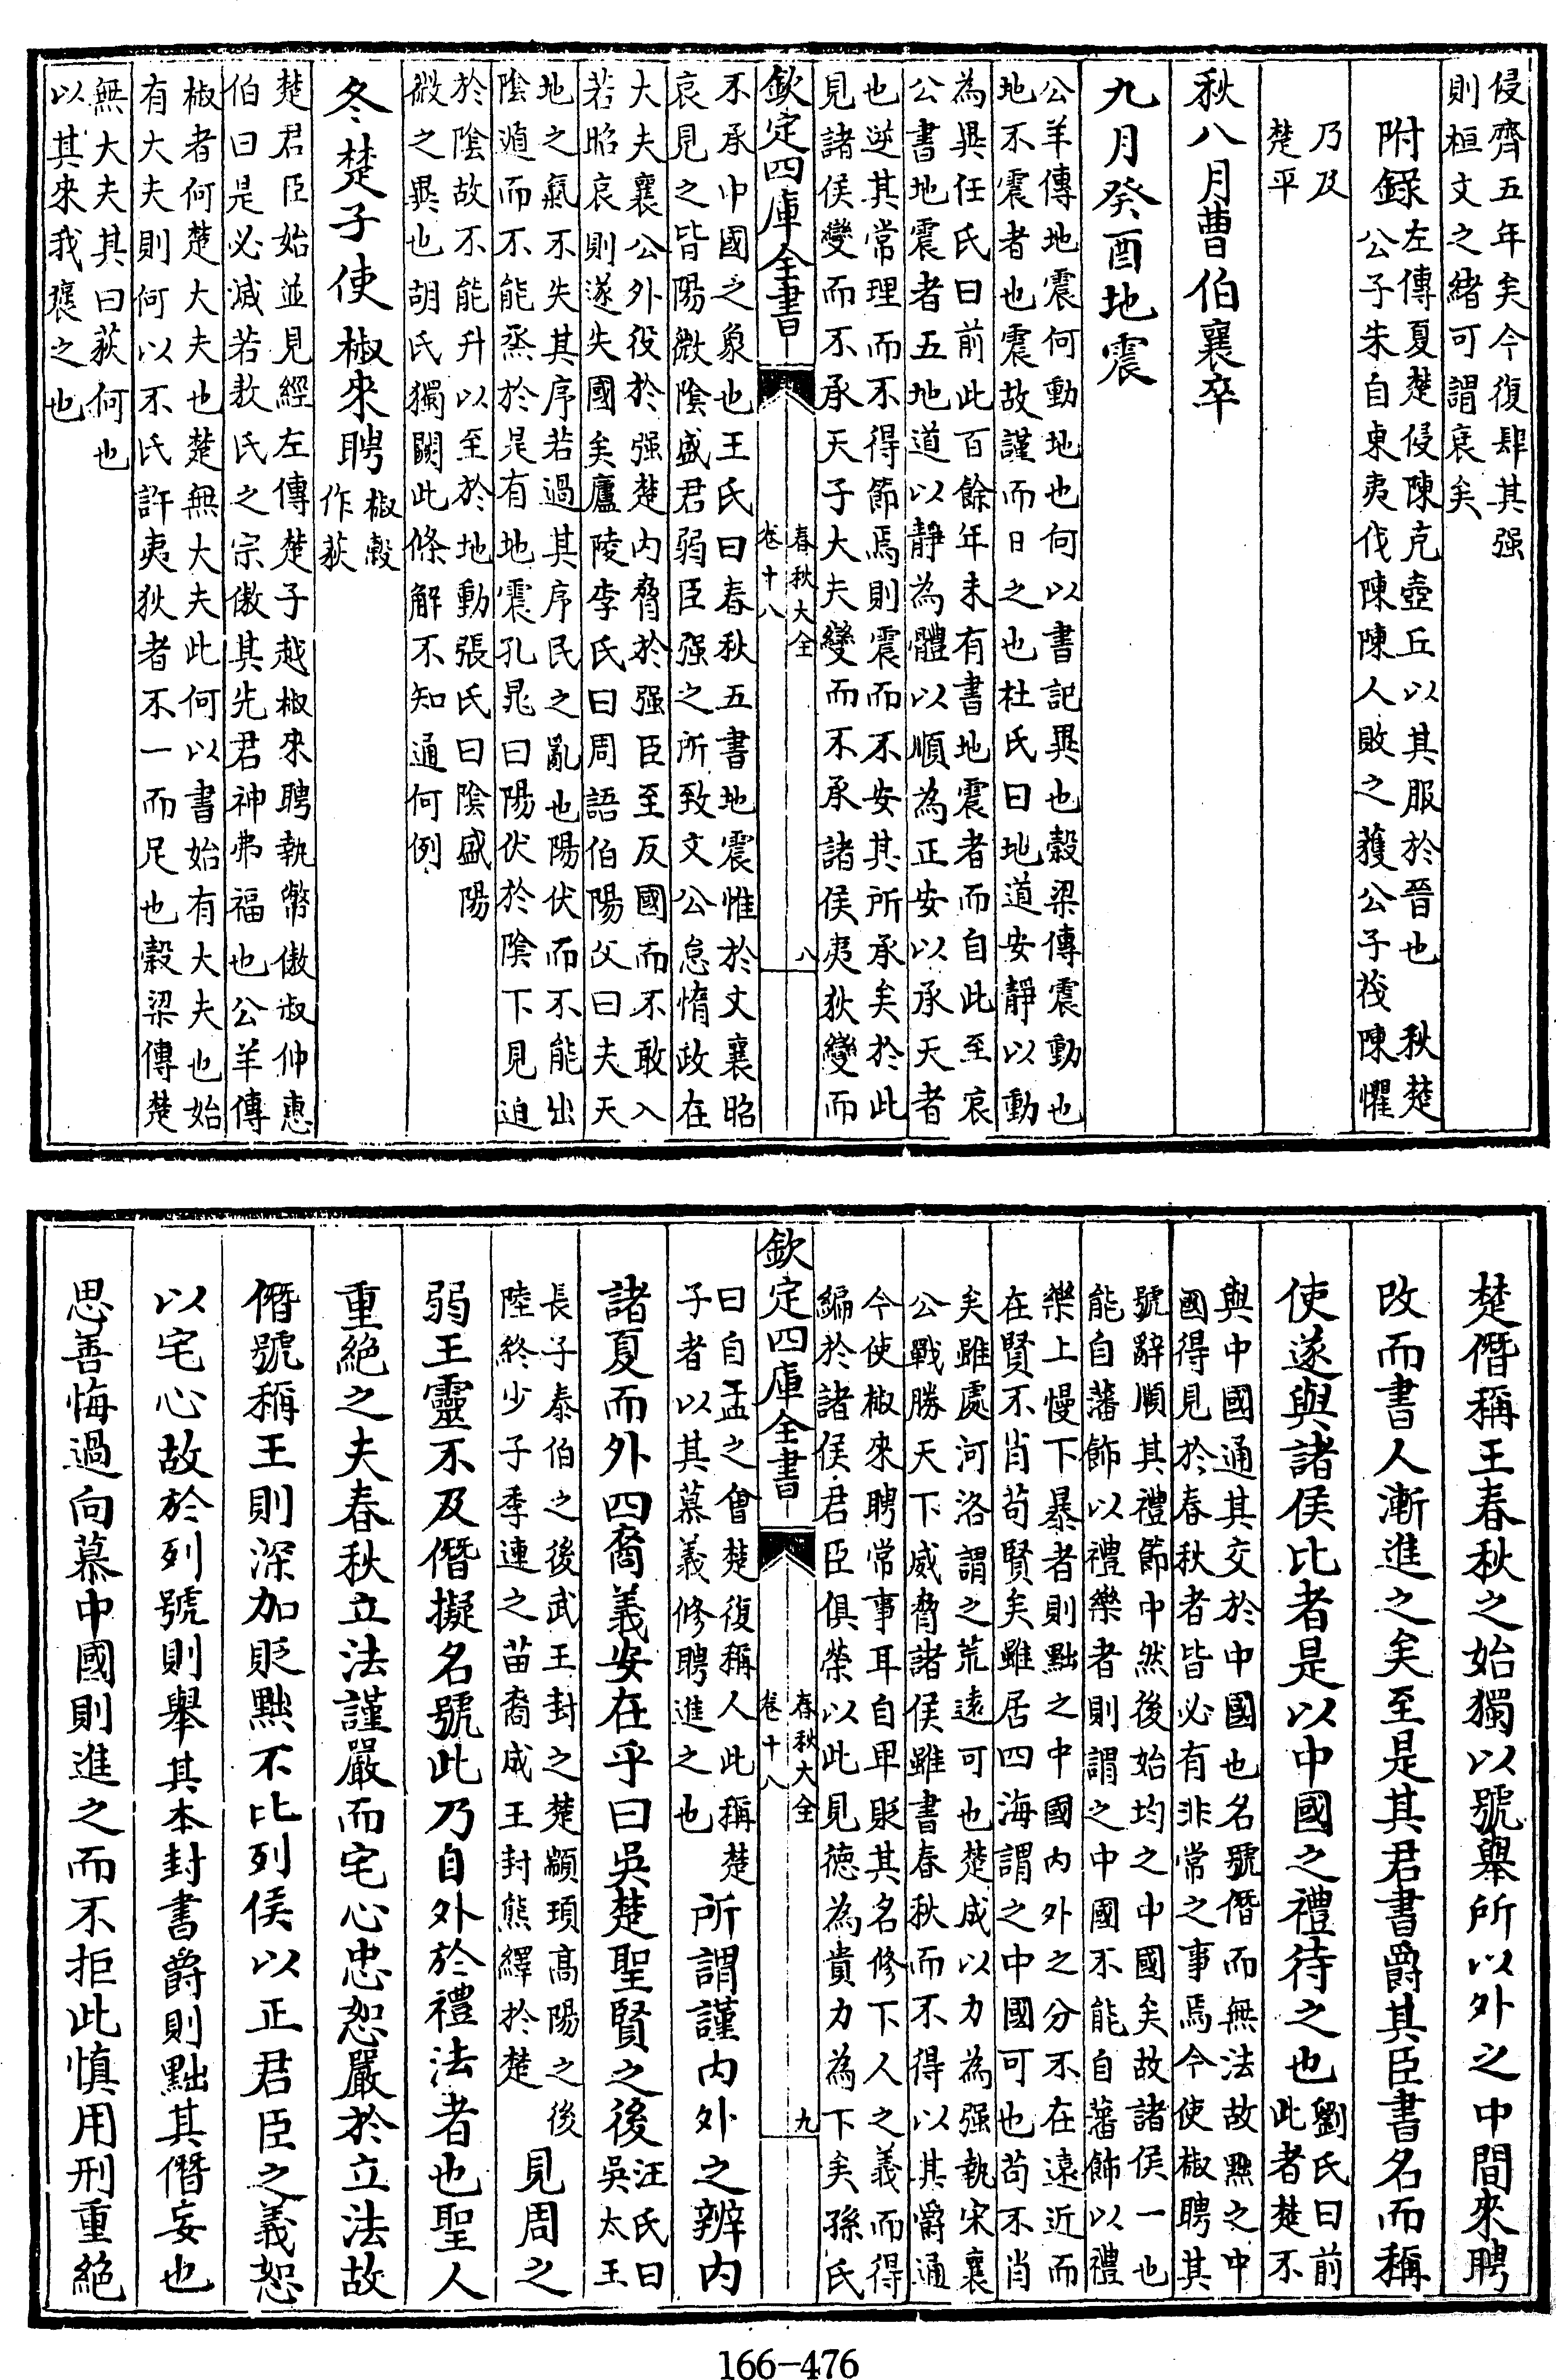 侵齊五年矣今復肆其强
則桓文之緒可謂衰矣
附錄左傳夏楚侵陳克壺丘以其服於晉也 秋楚
公子朱自東夷伐陳陳人敗之獲公子茷陳懼
乃及
楚平
秋八月曹伯襄卒
九月癸酉地震
公羊傳地震何動地也何以書記異也穀梁傳震動也
地不震者也震故謹而日之也杜氏曰地道安靜以動
為異任氏曰前此百餘年未有書地震者而自此至哀
公書地震者五地道以靜為體以順為正安以承天者
也逆其常理而不得節焉則震而不安其所承矣於此
見諸侯變而不承天子大夫變而不承諸侯夷狄變而
欽定四庫全書
春秋大全
卷十八
八
不承中國之象也王氏曰春秋五書地震惟於文襄昭
哀見之皆陽微陰盛君弱臣强之所致文公怠惰政在
大夫襄公外役於强楚內脅於强臣至反國而不敢入
若昭哀則遂失國矣廬陵李氏曰周語伯陽父曰夫天
地之氣不失其序若過其序民之亂也陽伏而不能出
陰遁而不能烝於是有地震孔晁曰陽伏於陰下見迫
於陰故不能升以至於地動張氏曰陰盛陽
微之異也胡氏獨闕此條解不知通何例
冬楚子使椒來聘椒穀
作萩
楚君臣始並見經左傳楚子越椒來聘執幣傲叔仲惠
伯曰是必滅若敖氏之宗傲其先君神弗福也公羊傳
椒者何楚大夫也楚無大夫此何以書始有大夫也始
有大夫則何以不氏許夷狄者不一而足也穀梁傳楚
無大夫其曰萩何也
以其來我褒之也
楚僭稱王春秋之始獨以號舉所以外之中間來聘
改而書人漸進之矣至是其君書爵其臣書名而稱
使遂與諸侯比者是以中國之禮待之也劉氏曰前
此者楚不
與中國通其交於中國也名號僭而無法故黜之中
國得見於春秋者皆必有非常之事焉今使椒聘其
號辭順其禮節中然後始均之中國矣故諸侯一也
能自藩飾以禮樂者則謂之中國不能自藩飾以禮
樂上慢下暴者則黜之中國內外之分不在遠近而
在賢不肖苟賢矣雖居四海謂之中國可也苟不肖
矣雖處河洛謂之荒遠可也楚成以力為强執宋襄
公戰勝天下威脅諸侯雖書春秋而不得以其爵通
今使椒來聘常事耳自卑貶其名修下人之義而得
編於諸侯君臣俱榮以此見德為貴力為下矣孫氏
欽定四庫全書
春秋大全
卷十八
九
曰自孟之會楚復稱人此稱楚
子者以其慕義修聘進之也
所謂謹內外之辨內
諸夏而外四裔義安在乎曰吳楚聖賢之後汪氏曰
吳太王
長子泰伯之後武王封之楚顓頊高陽之後
陸終少子季連之苗裔成王封熊繹於楚
見周之
弱王靈不及僭擬名號此乃自外於禮法者也聖人
重絕之夫春秋立法謹嚴而宅心忠恕嚴於立法故
僭號稱王則深加貶黜不比列侯以正君臣之義恕
以宅心故於列號則舉其本封書爵則黜其僭妄也
思善悔過向慕中國則進之而不拒此慎用刑重絕
166-476